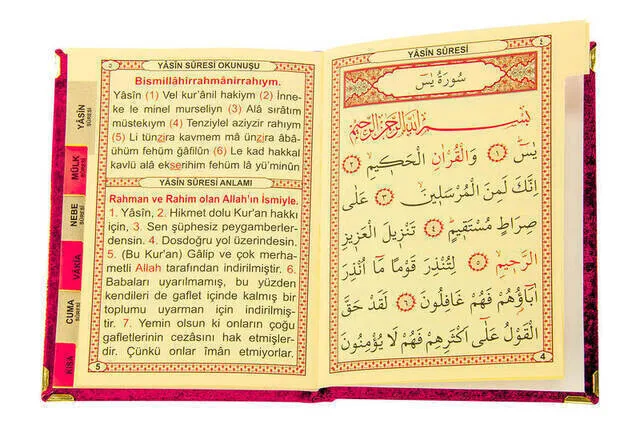 YÂSİN SÛRESİ
٤
سُورَةُ يٰسٓ
بِسْمِ اللّٰهِ الرَّحْمٰنِ الرَّحِيمِ
يٰسٓ ﴿١﴾ وَالْقُرْاٰنِ الْحَكِيمِ ﴿٢﴾
اِنَّكَ لَمِنَ الْمُرْسَلِينَ ﴿٣﴾ عَلٰى
صِرَاطٍ مُسْتَقِيمٍ ﴿٤﴾ تَنْزِيلَ الْعَزِيزِ
الرَّحِيمِ ﴿٥﴾ لِتُنْذِرَ قَوْمًا مَٓا اُنْذِرَ
اٰبَٓاؤُهُمْ فَهُمْ غَافِلُونَ ﴿٦﴾ لَقَدْ حَقَّ
الْقَوْلُ عَلٰٓى اَكْثَرِهِمْ فَهُمْ لَا يُؤْمِنُونَ
4
٥
YÂSİN SÛRESİ OKUNUŞU
Bismillâhirrahmânirrahıym.
Yâsîn (1) Vel kur'ânil hakiym (2) İnne-
ke le minel murseliyn (3) Alâ sırâtım
müstekıym (4) Tenziylel aziyzir rahıym
(5) Li tünzira kavmem mâ ünzira âbâ-
ühüm fehüm ğâfilûn (6) Le kad hakkal
kavlü alâ ekserihim fehüm lâ yü'minûn
YÂSİN SÛRESİ ANLAMI
Rahman ve Rahîm olan Allah'ın İsmiyle.
1. Yâsîn, 2. Hikmet dolu Kur'an hakkı
için, 3. Sen şüphesiz peygamberler-
densin. 4. Dosdoğru yol üzerindesin.
5. (Bu Kur'an) Gâlip ve çok merha-
metli Allah tarafından indirilmiştir. 6.
Babaları uyarılmamış, bu yüzden
kendileri de gaflet içinde kalmış bir
toplumu uyarman için indirilmiş-
tir. 7. Yemin olsun ki onların çoğu
gafletlerinin cezasını hak etmişler-
dir. Çünkü onlar îmân etmiyorlar.
5
YÂSİN
SÛRESİ
MÜLK
NEBE
SÛRESİ
VÂKIA
CUMA
SÛRESİ
KISA